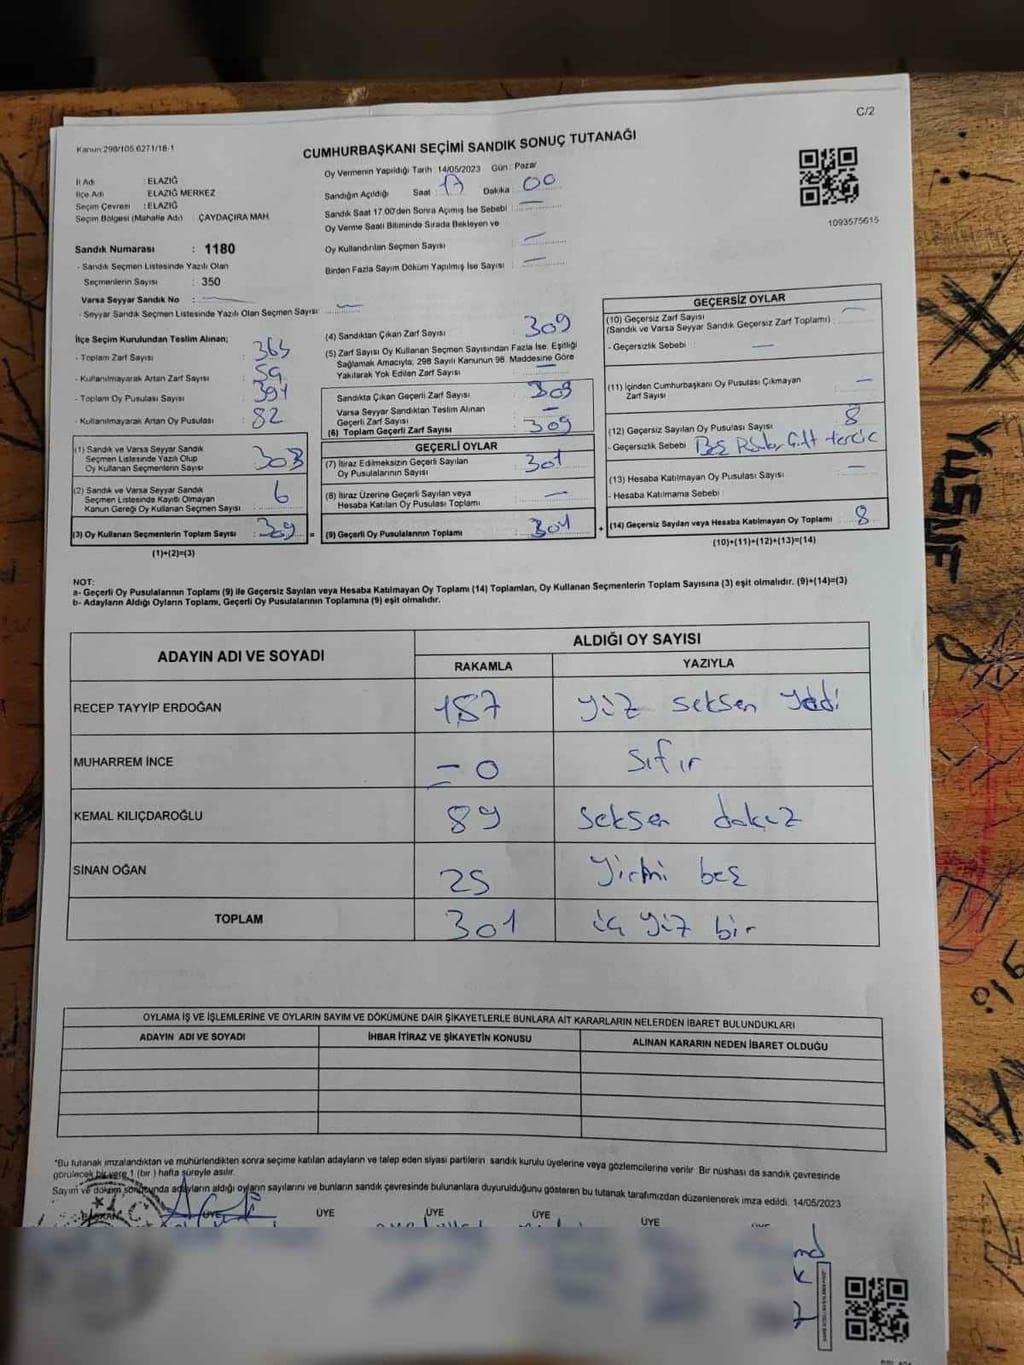 C/2
Kanun:298/105.6271/18-1
CUMHURBAŞKANI SEÇİMİ SANDIK SONUÇ TUTANAĞI
İl Adı : ELAZIĞ
İlçe Adı : ELAZIĞ MERKEZ
Seçim Çevresi : ELAZIĞ
Seçim Bölgesi (Mahalle Adı) : ÇAYDAÇIRA MAH.
Oy Vermenin Yapıldığı Tarih :14/05/2023 Gün : Pazar
Sandığın Açıldığı Saat : 17 Dakika : 00
Sandık Saat 17.00'den Sonra Açımış İse Sebebi : —
Oy Verme Saati Bitiminde Sırada Bekleyen ve
Oy Kullandırılan Seçmen Sayısı : —
Birden Fazla Sayım Döküm Yapılmış İse Sayısı : —
1093575615
Sandık Numarası : 1180
- Sandık Seçmen Listesinde Yazılı Olan
Seçmenlerin Sayısı : 350
Varsa Seyyar Sandık No : —
- Seyyar Sandık Seçmen Listesinde Yazılı Olan Seçmen Sayısı: —
İlçe Seçim Kurulundan Teslim Alınan;
- Toplam Zarf Sayısı :
- Kullanılmayarak Artan Zarf Sayısı : 59
- Toplam Oy Pusulası Sayısı : 391
- Kullanılmayarak Artan Oy Pusulası : 82
(1) Sandık ve Varsa Seyyar Sandık
Seçmen Listesinde Yazılı Olup
Oy Kullanan Seçmenlerin Sayısı : 303
(2) Sandık ve Varsa Seyyar Sandık
Seçmen Listesinde Kayıtlı Olmayan
Kanun Gereği Oy Kullanan Seçmen Sayısı : 6
(3) Oy Kullanan Seçmenlerin Toplam Sayısı : 309 =
(1)+(2)=(3)
(4) Sandıktan Çıkan Zarf Sayısı : 309
(5) Zarf Sayısı Oy Kullanan Seçmen Sayısından Fazla İse, Eşitliği
Sağlamak Amacıyla; 298 Sayılı Kanunun 98. Maddesine Göre
Yakılarak Yok Edilen Zarf Sayısı : —
Sandıkta Çıkan Geçerli Zarf Sayısı : 309
Varsa Seyyar Sandıktan Teslim Alınan
Geçerli Zarf Sayısı : —
(6) Toplam Geçerli Zarf Sayısı : 309
GEÇERLİ OYLAR
(7) İtiraz Edilmeksizin Geçerli Sayılan
Oy Pusulalarının Sayısı : 301
(8) İtiraz Üzerine Geçerli Sayılan veya
Hesaba Katılan Oy Pusulası Toplamı : —
(9) Geçerli Oy Pusulalarının Toplamı : 301 +
GEÇERSİZ OYLAR
(10) Geçersiz Zarf Sayısı
(Sandık ve Varsa Seyyar Sandık Geçersiz Zarf Toplamı) : —
- Geçersizlik Sebebi : —
(11) İçinden Cumhurbaşkanı Oy Pusulası Çıkmayan
Zarf Sayısı : —
(12) Geçersiz Sayılan Oy Pusulası Sayısı : 8
- Geçersizlik Sebebi : Çift tercic
(13) Hesaba Katılmayan Oy Pusulası Sayısı : —
- Hesaba Katılmama Sebebi :
(14) Geçersiz Sayılan veya Hesaba Katılmayan Oy Toplamı : 8
(10)+(11)+(12)+(13)=(14)
NOT:
a- Geçerli Oy Pusulalarının Toplamı (9) ile Geçersiz Sayılan veya Hesaba Katılmayan Oy Toplamı (14) Toplamları, Oy Kullanan Seçmenlerin Toplam Sayısına (3) eşit olmalıdır. (9)+(14)=(3)
b- Adayların Aldığı Oyların Toplamı, Geçerli Oy Pusulalarının Toplamına (9) eşit olmalıdır.
ADAYIN ADI VE SOYADI ALDIĞI OY SAYISI
RAKAMLA YAZIYLA
RECEP TAYYİP ERDOĞAN 187 yüz seksen yedi
MUHARREM İNCE = 0 sıfır
KEMAL KILIÇDAROĞLU 89 seksen dokuz
SİNAN OĞAN 25 yirmi beş
TOPLAM 301 üç yüz bir
OYLAMA İŞ VE İŞLEMLERİNE VE OYLARIN SAYIM VE DÖKÜMÜNE DAİR ŞİKAYETLERLE BUNLARA AİT KARARLARIN NELERDEN İBARET BULUNDUKLARI
ADAYIN ADI VE SOYADI İHBAR İTİRAZ VE ŞİKAYETİN KONUSU ALINAN KARARIN NEDEN İBARET OLDUĞU
*Bu tutanak imzalandıktan ve mühürlendikten sonra seçime katılan adayların ve talep eden siyasi partilerin sandık kurulu üyelerine veya gözlemcilerine verilir. Bir nüshası da sandık çevresinde
görülecek bir yere 1 (bir) hafta süreyle asılır.
Sayım ve döküm sonucunda adayların aldığı oyların sayılarını ve bunların sandık çevresinde bulunanlara duyurulduğunu gösteren bu tutanak tarafımızdan düzenlenerek imza edildi. 14/05/2023
BAŞKAN ÜYE ÜYE ÜYE ÜYE ÜYE ÜYE
YUSUF